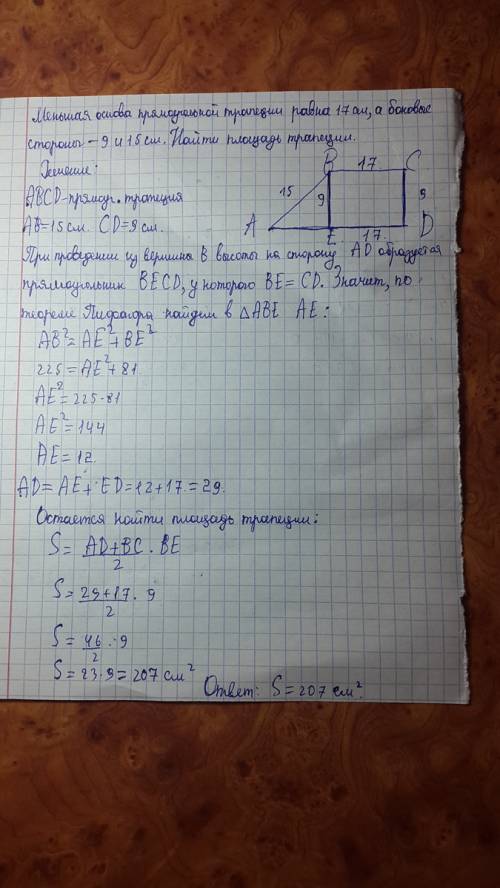 Меньшая основа прямоугольной трапеции равна 17 см, а боковые
стороны – 9 и 15 см. Найти площадь трапеции.
Решение:
ABCD-прямоуг. трапеция
AB=15 см. CD=9 см.
B 17 C
15 9 9
A E 17. D
При проведении из вершины B высоты на сторону AD образуется
прямоугольник BECD, у которого BE=CD. Значит, по
теореме Пифагора найдем в △ABE AE:
AB²=AE²+BE²
225=AE²+81
AE²=225-81
AE²=144
AE=12.
AD=AE+ED=12+17.=29.
Остается найти площадь трапеции:
S= AD+BC/2 · BE
S= 29+17/2 · 9
S= 46/2 · 9
S=23·9=207 см²
Ответ: S=207 см².